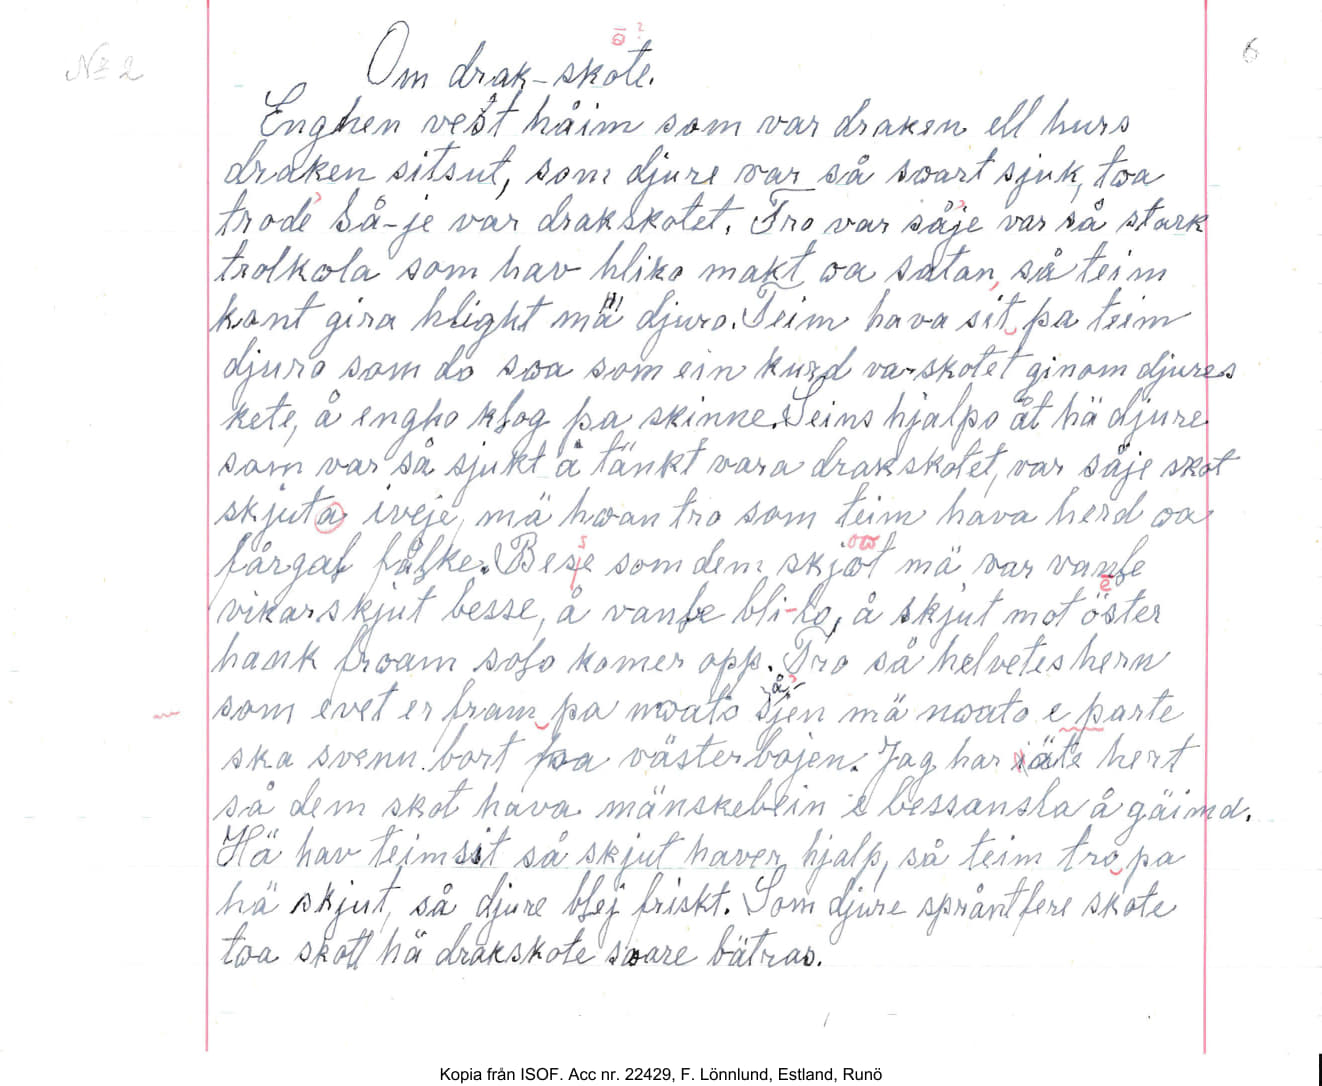 No 2
6
ō ?
Om drak-skote.
Enghen vest håim som var draken ell hurs
draken sitsut, som djure var så svart sjuk, toa
trode så-je var drakskotet. Tro var såje var så stark
trolkola som hav hliko makt oa satan, så teim
kont gira hlight mä djuro. Teim hava sit pa teim
djuro som do soa som ein kurd va-skotet ginom djures
kete, å engho hog pa skinne. Seins hjalpo åt hä djure
som var så sjukt å tänkt vara drakskotet, var såje skot
skjuta iveje, mä hoan tro som teim hava herd oa
fårgaf fålke. Bese som dem skjot mä var vanfe
vikar skjut besse, å vanfe bli-lo, å skjut mot öster
hank froam solo komer opp. Tro så helvetes hern
som evet er fram pa noato sjen mä noato e parte
ska svenn bort pa västerbojen. Jag har äte hert
så dem skot hava mänskebein e bessansla å gäimd.
Hä hav teimsit så skjut haver hjalp, så teim tro pa
hä skjut, så djure blej friskt. Som djure språnt fere skote
toa skott hä drakskote soare bätras.
Kopia från ISOF. Acc nr. 22429, F. Lönnlund, Estland, Runö